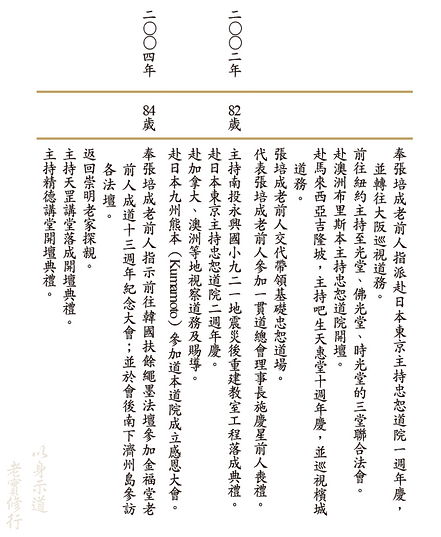 奉張培成老前人指派赴日本東京主持忠恕道院一週年慶，
並轉往大阪巡視道務。
前往紐約主持至光堂、佛光堂、時光堂的三堂聯合法會。
赴澳洲布里斯本主持忠恕道院開壇。
赴馬來西亞吉隆坡，主持吧生天惠堂十週年慶，並巡視檳城
道務。
張培成老前人交代帶領基礎忠恕道場。
代表張培成老前人參加一貫道總會理事長施慶星前人喪禮。
二〇〇二年 82歲 主持南投永興國小九二一地震災後重建教室工程落成典禮。
赴日本東京主持忠恕道院二週年慶。
赴加拿大、澳洲等地視察道務及賜導。
赴日本九州熊本（Kumamoto）參加道本道院成立感恩大會。
二〇〇四年 84歲 奉張培成老前人指示前往韓國扶餘繩墨法壇參加金福堂老
前人成道十三週年紀念大會；並於會後南下濟州島參訪
各法壇。
返回崇明老家探親。
主持天罡講堂落成開壇典禮。
主持精德講堂開壇典禮。
以身示道
老實修行